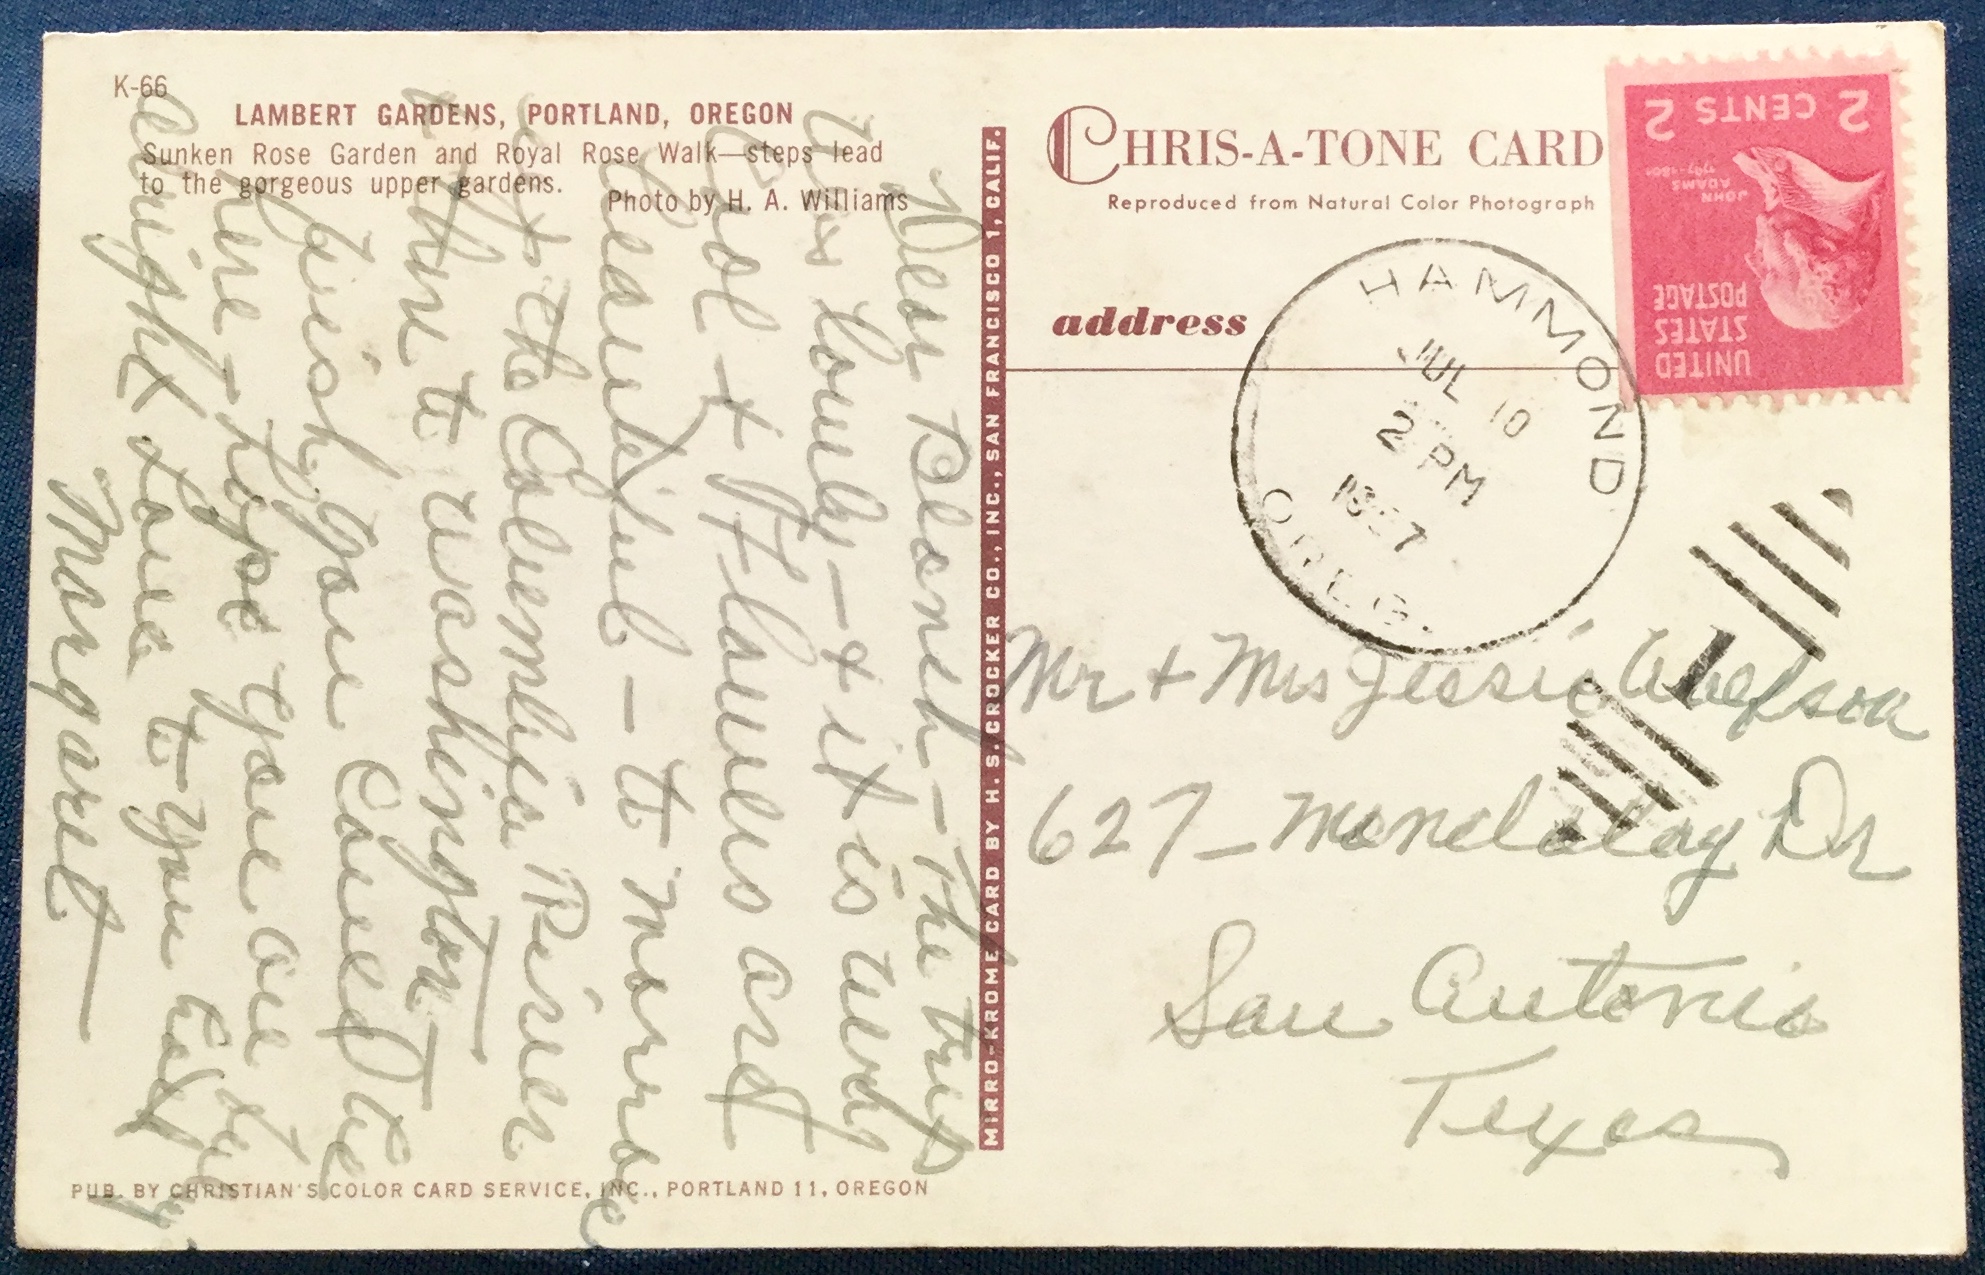 K-66
LAMBERT GARDENS, PORTLAND, OREGON
Sunken Rose Garden and Royal Rose Walk—steps lead
to the gorgeous upper gardens.
Photo by H. A. Williams
Dear Blanch - The trip
is lovely - & it is very
Cool & Flowers are
beautiful - to morroe
at the Columbia River
& then to Washington -
Wish you Could be
here - hope you are
alright Love to you
Margaret
PUB. BY CHRISTIAN'S COLOR CARD SERVICE, INC., PORTLAND 11, OREGON
MIRRO-KROME CARD BY H. S. CROCKER CO., INC., SAN FRANCISCO 1, CALIF.
CHRIS-A-TONE CARD
Reproduced from Natural Color Photograph
address
2 CENTS 2
JOHN
ADAMS
1797-1801
UNITED
STATES
POSTAGE
HAMMOND
JUL 10
2 PM
1957
OREG.
1
Mr + Mrs Jessie
627- Mandalay Dr
San Antonio
Texas